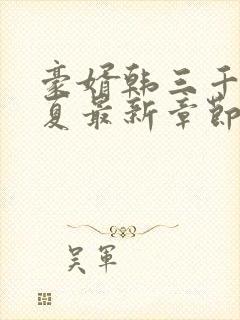 豪婿韩三千
夏最新章節
吴軍